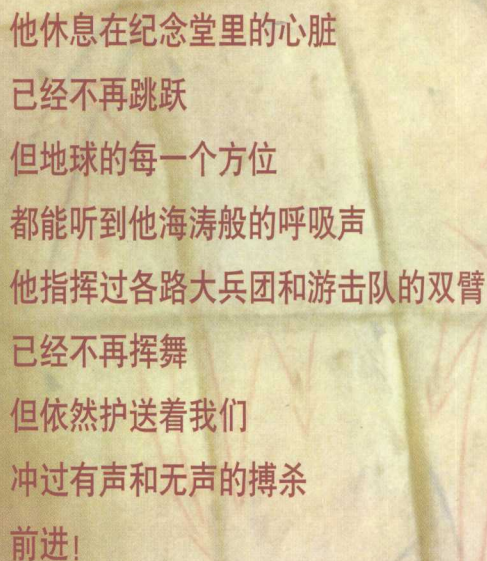 他休息在纪念堂里的心脏
已经不再跳跃
但地球的每一个方位
都能听到他海涛般的呼吸声
他指挥过各路大兵团和游击队的双臂
已经不再挥舞
但依然护送着我们
冲过有声和无声的搏杀
前进！